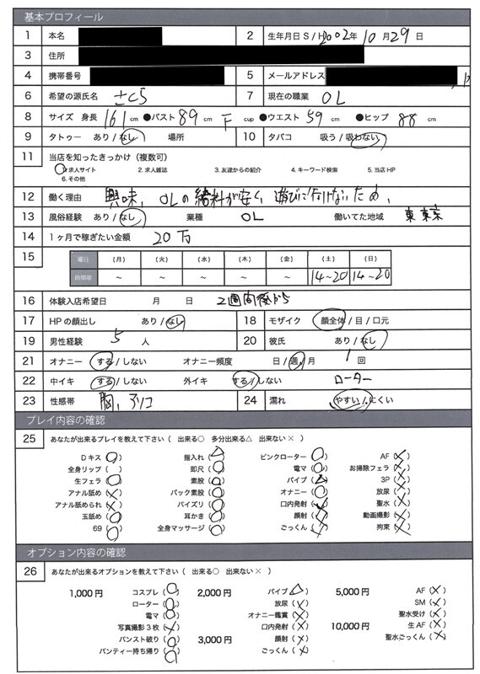 基本プロフィール
1 本名 2 生年月日 S / H 2002年 10月 29日
3 住所
4 携帯番号 5 メールアドレス
6 希望の源氏名 さくら 7 現在の職業 OL
8 サイズ 身長 161 cm ●バスト 89 cm F cup ●ウエスト 59 cm ●ヒップ 88 cm
9 タトゥー あり / なし 場所 10 タバコ 吸う / 吸わない
11 当店を知ったきっかけ (複数可)
1.求人サイト 2.求人雑誌 3.友達からの紹介 4.キーワード検索 5.当店HP
6.その他
12 働く理由 興味、OLの給料が安く、遊びに行けないため、
13 風俗経験 あり / なし 業種 OL 働いてた地域 東京
14 1ヶ月で稼ぎたい金額 20万
15 曜日 (月) (火) (水) (木) (金) (土) (日)
時間帯 ~ ~ ~ ~ ~ 14~20 14~20
16 体験入店希望日 月 日 2週間後から
17 HPの顔出し あり / なし 18 モザイク 顔全体 / 目 / 口元
19 男性経験 5 人 20 彼氏 あり / なし
21 オナニー する / しない オナニー頻度 日 / 週 / 月 1 回
22 中イキ する / しない 外イキ する / しない ローター
23 性感帯 胸、クリ 24 濡れ やすい / にくい
プレイ内容の確認
25 あなたが出来るプレイを教えて下さい ( 出来る○ 多分出来る△ 出来ない× )
Dキス (○) 指入れ (△) ピンクローター (○) AF (×)
全身リップ ( ) 即尺 (○) 電マ (○) お掃除フェラ (×)
生フェラ (○) 素股 (○) バイブ (△) 3P (×)
アナル舐め (×) バック素股 (○) オナニー (○) 放尿 (×)
アナル舐められ (×) パイズリ (○) 口内発射 (×) 聖水 (×)
玉舐め (○) 耳かき (○) 顔射 (×) 動画撮影 (×)
69 (○) 全身マッサージ (○) ごっくん (×) 拘束 (×)
オプション内容の確認
26 あなたが出来るオプションを教えて下さい ( 出来る○ 出来ない× )
1,000円 コスプレ (○) 2,000円 バイブ (△) 5,000円 AF (×)
ローター (○) 放尿 (×) SM (×)
電マ (○) オナニー鑑賞 (×) 聖水受け (×)
写真撮影3枚 (×) 口内発射 (×) 10,000円 生AF (×)
パンスト破り (○) 3,000円 顔射 (×) 聖水ごっくん (×)
パンティー持ち帰り (○) ごっくん (×)